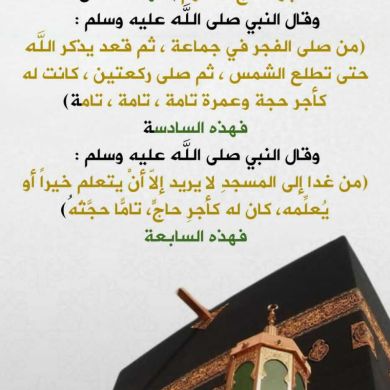 وقال النبي صلى الله عليه وسلم :
(من صلى الفجر في جماعة ، ثم قعد يذكر الله
حتى تطلع الشمس ، ثم صلى ركعتين ، كانت له
كأجر حجة وعمرة تامة ، تامة ، تامة)
فهذه السادسة
وقال النبي صلى الله عليه وسلم :
(من غدا إلى المسجدِ لا يريد إلاّ أنْ يتعلم خيراً أو
يُعلِّمه، كان له كأجرِ حاجٍّ، تامًّا حجَّتُهُ)
فهذه السابعة